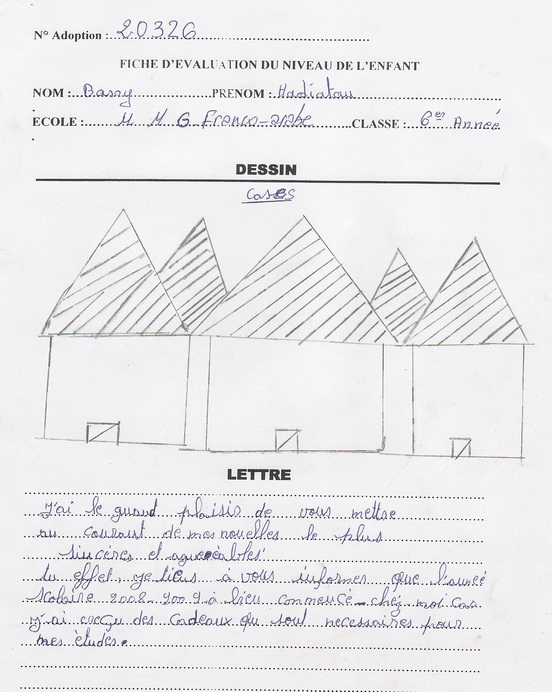 N° Adoption : 20326
FICHE D'EVALUATION DU NIVEAU DE L'ENFANT
NOM : Barry PRENOM : Hadiatou
ECOLE : M M G Franco-arabe CLASSE : 6er Année
DESSIN
Cases
LETTRE
J'ai le grand plaisir de vous mettre
au courant de mes nouvelles le plus
sincères et agréables
En effet, je tiens à vous informer que l'année
scolaire 2008-2009 à bien commencé chez moi car
j'ai reçu des cadeaux qui sont necessaires pour
mes ètudes.